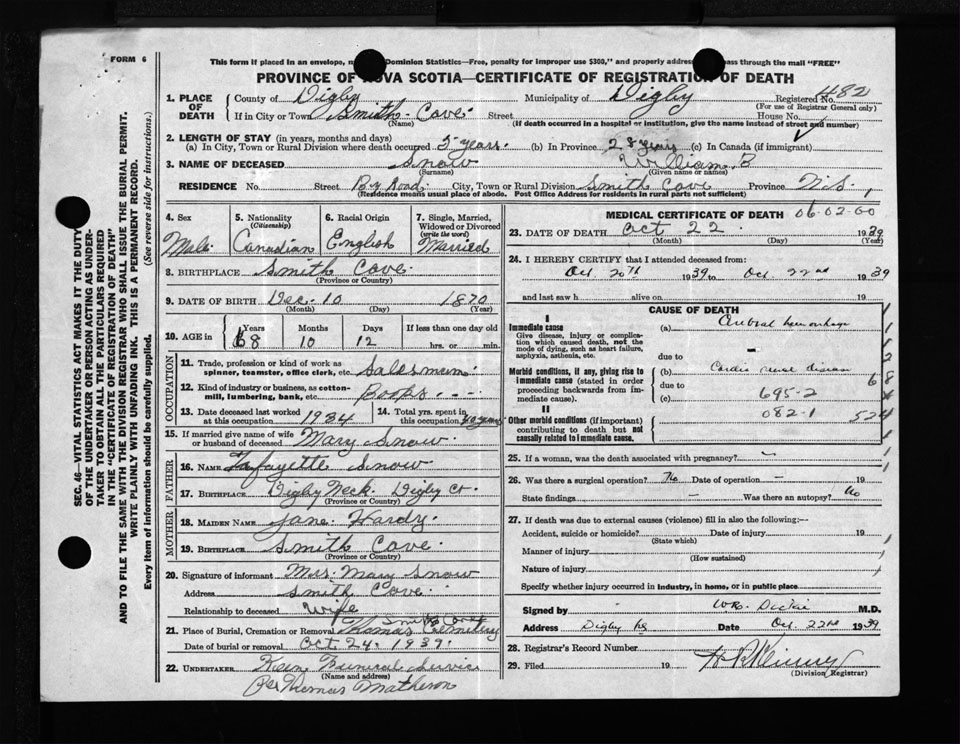 FORM 6
This form if placed in an envelope, m Dominion Statistics—Free, penalty for improper use $300," and properly addres ass through the mail "FREE"
PROVINCE OF NOVA SCOTIA—CERTIFICATE OF REGISTRATION OF DEATH
1. PLACE OF DEATH County of Digby Municipality of Digby Registered No. 482
(For use of Registrar General only)
If in City or Town Smith-Cove Street House No.
(Name) (If death occurred in a hospital or institution, give the name instead of street and number)
2. LENGTH OF STAY (in years, months and days)
(a) In City, Town or Rural Division where death occurred 5 years. (b) In Province 28 years (c) In Canada (if immigrant)
3. NAME OF DECEASED Snow William B
(Surname) (Given name or names)
RESIDENCE No. Street By Road. City, Town or Rural Division Smith Cove Province N.S.
(Residence means usual place of abode. Post Office Address for Residents in rural parts not sufficient)
4. Sex 5. Nationality 6. Racial Origin 7. Single, Married, Widowed or Divorced
(Citizenship) (write the word)
Male Canadian English Married
8. BIRTHPLACE Smith Cove.
(Province or Country)
9. DATE OF BIRTH Dec. 10 1870
(Month) (Day) (Year)
10. AGE in Years Months Days If less than one day old
68 10 12 hrs. or min.
OCCUPATION
11. Trade, profession or kind of work as spinner, teamster, office clerk, etc. Salesman
12. Kind of industry or business, as cotton-mill, lumbering, bank, etc.
13. Date deceased last worked at this occupation 1934 14. Total yrs. spent in this occupation 40 years
15. If married give name of wife or husband of deceased Mary Snow.
FATHER
16. Name Lafayette Snow
17. BIRTHPLACE Digby Neck Digby Co.
(Province or Country)
MOTHER
18. MAIDEN NAME Jane Hardy.
19. BIRTHPLACE Smith Cove.
(Province or Country)
20. Signature of informant Mrs. Mary Snow
Address Smith Cove.
Relationship to deceased Wife
Smith Cove
21. Place of Burial, Cremation or Removal Thomas Cemetery
Date of burial or removal Oct 24. 1939.
22. UNDERTAKER Funeral Service
(Name and address)
Per Thomas Matheson
MEDICAL CERTIFICATE OF DEATH 06-02-00
23. DATE OF DEATH Oct 22 1939
(Month) (Day) (Year)
24. I HEREBY CERTIFY that I attended deceased from:
Oct 20th 1939 to Oct. 22nd 1939
and last saw h alive on 19
CAUSE OF DEATH
I
Immediate cause (a) Cerebral hemorrhage
Give disease, injury or complication which caused death, not the mode of dying, such as heart failure, asphyxia, asthenia, etc.
due to
Morbid conditions, if any, giving rise to immediate cause (stated in order proceeding backwards from immediate cause).
(b) Cardio renal disease
due to
(c) 695-2
II
082-1 524
Other morbid conditions (if important) contributing to death but not causally related to immediate cause.
25. If a woman, was the death associated with pregnancy? –
26. Was there a surgical operation? No Date of operation – 19
State findings – Was there an autopsy? No
27. If death was due to external causes (violence) fill in also the following:—
Accident, suicide or homicide? Date of injury 19
(State which)
Manner of injury
(How sustained)
Nature of injury
Specify whether injury occurred in industry, in home, or in public place
Signed by Dickie M.D.
Address Digby NS Date Oct. 22nd 1939
28. Registrar's Record Number
29. Filed 19
(Division Registrar)
SEC. 46—VITAL STATISTICS ACT MAKES IT THE DUTY
OF THE UNDERTAKER OR PERSON ACTING AS UNDER-
TAKER TO OBTAIN ALL THE PARTICULARS REQUIRED
IN THE "CERTIFICATE OF REGISTRATION OF DEATH"
AND TO FILE THE SAME WITH THE DIVISION REGISTRAR WHO SHALL ISSUE THE BURIAL PERMIT.
WRITE PLAINLY WITH UNFADING INK. THIS IS A PERMANENT RECORD.
Every item of information should be carefully supplied. (See reverse side for instructions.)